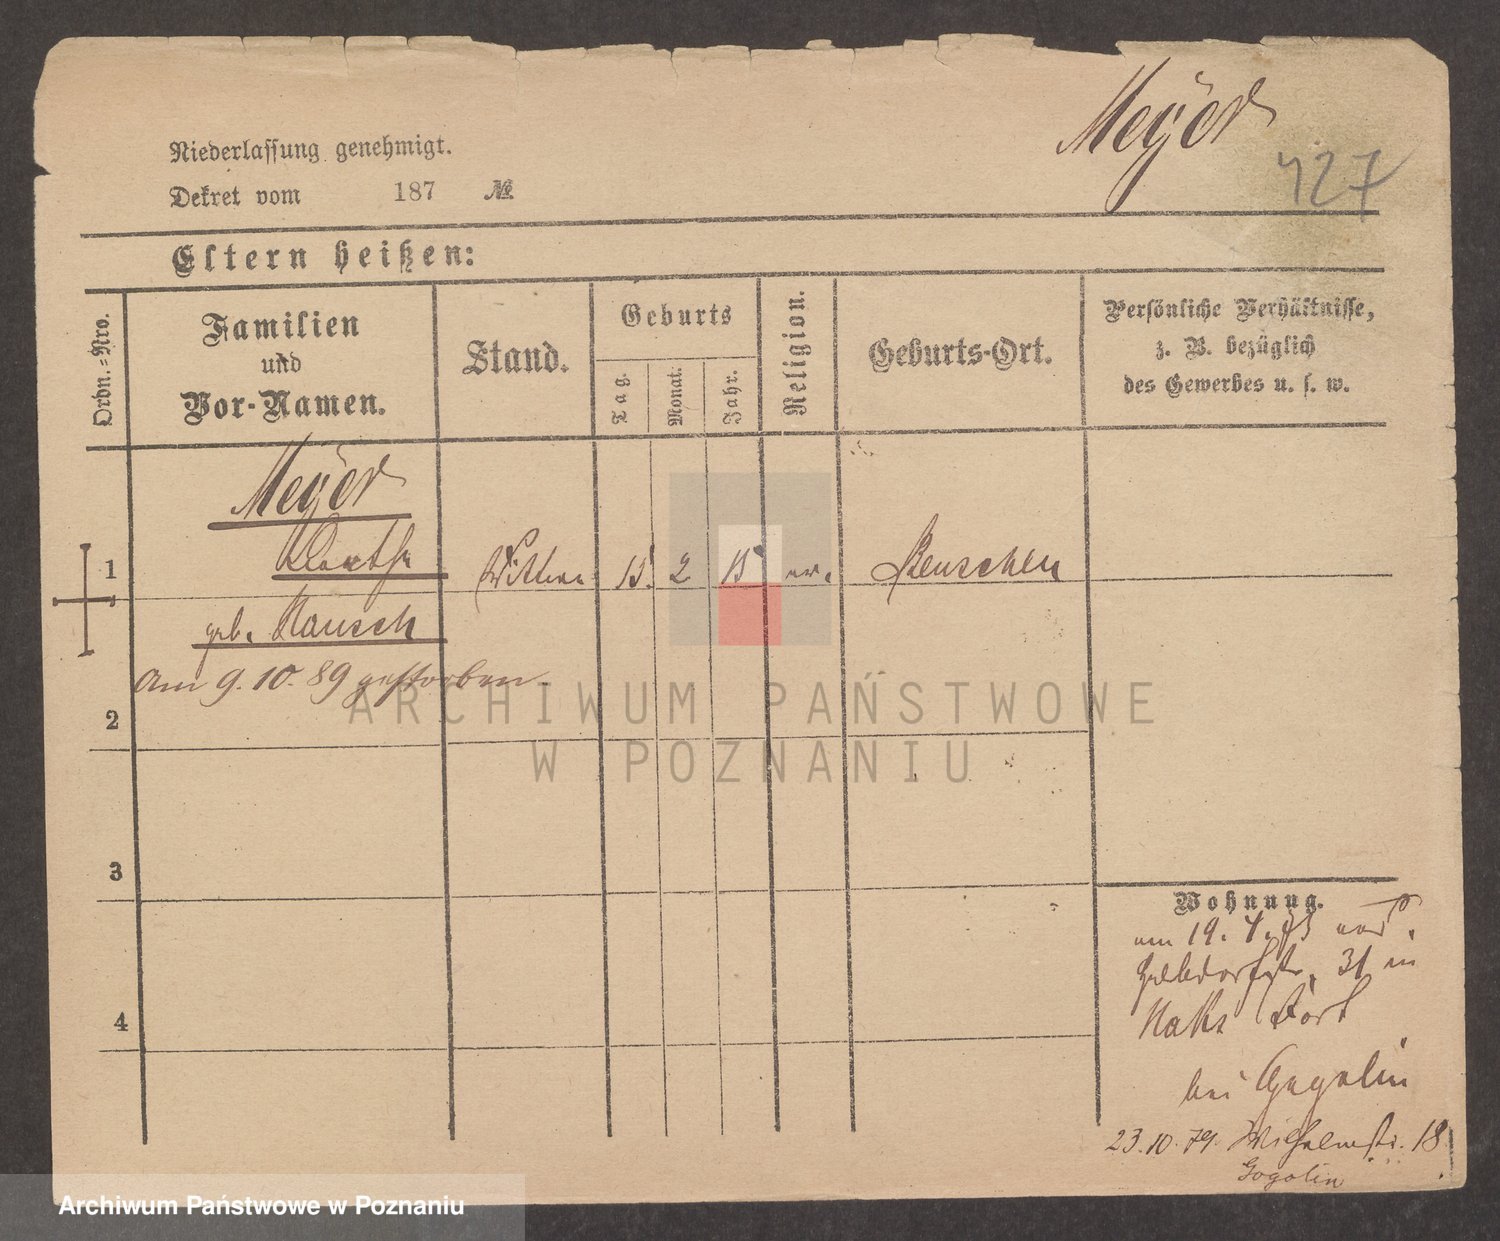 Meyer
427
Niederlassung genehmigt.
Dekret vom 187 №
Eltern heißen:
Ordn.-Nro.
Familien
und
Vor-Namen.
Stand.
Geburts
Tag.
Monat.
Jahr.
Religion.
Geburts-Ort.
Persönliche Verhältnisse,
z. B. bezüglich
des Gewerbes u. s. w.
Meyer
1 Wittwe 15. 2 15 ev. Bentschen
geb. Rausch
am 9. 10. 89 gestorben
2
3
4
Wohnung.
am 19. 4. 73
31 in
bei Gogolin
23. 10. 79. Wilhelmstr. 18
Gogolin
ARCHIWUM PAŃSTWOWE
W POZNANIU
Archiwum Państwowe w Poznaniu